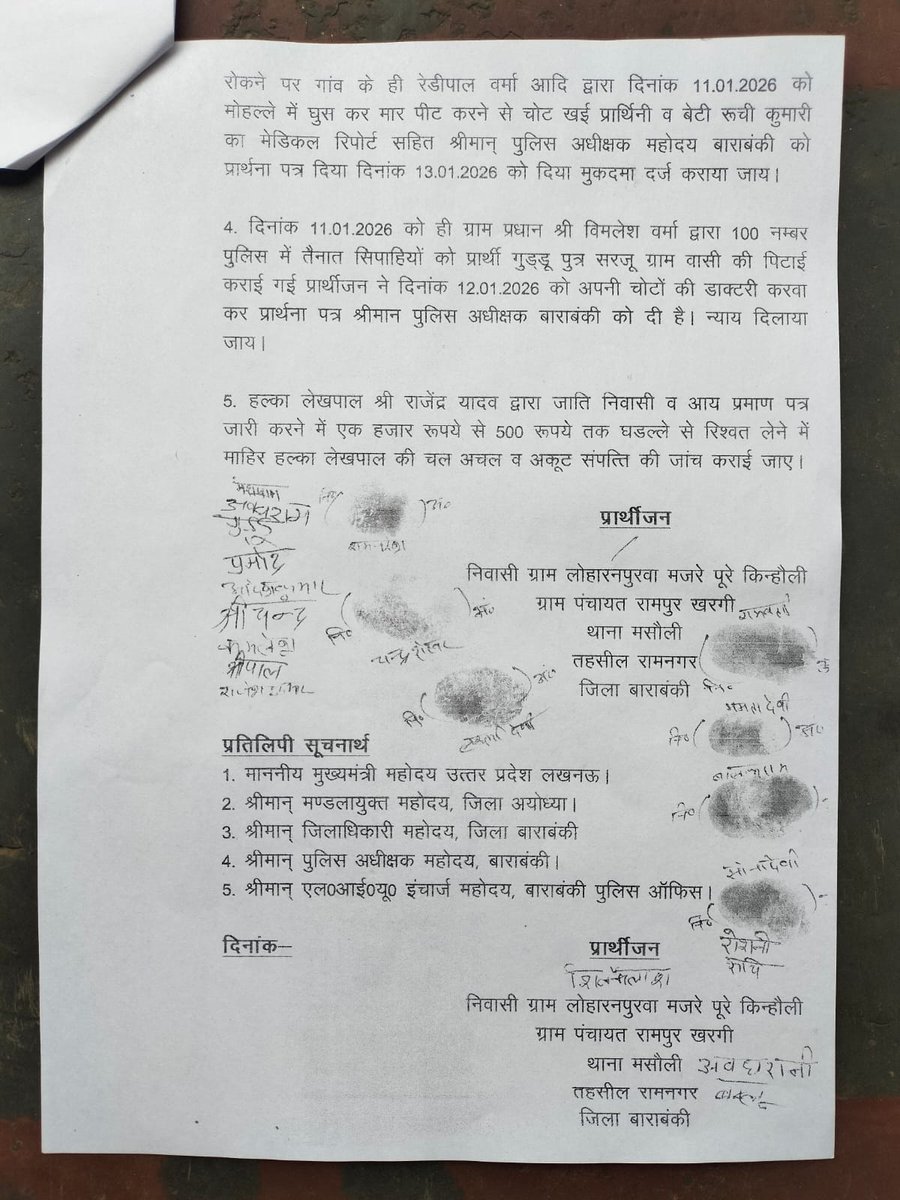 रोकने पर गांव के ही रेडीपाल वर्मा आदि द्वारा दिनांक 11.01.2026 को
मोहल्ले में घुस कर मार पीट करने से चोट खई प्रार्थिनी व बेटी रूची कुमारी
का मेडिकल रिपोर्ट सहित श्रीमान् पुलिस अधीक्षक महोदय बाराबंकी को
प्रार्थना पत्र दिया दिनांक 13.01.2026 को दिया मुकदमा दर्ज कराया जाय।
4. दिनांक 11.01.2026 को ही ग्राम प्रधान श्री विमलेश वर्मा द्वारा 100 नम्बर
पुलिस में तैनात सिपाहियों को प्रार्थी गुड्डू पुत्र सरजू ग्राम वासी की पिटाई
कराई गई प्रार्थीजन ने दिनांक 12.01.2026 को अपनी चोटों की डाक्टरी करवा
कर प्रार्थना पत्र श्रीमान पुलिस अधीक्षक बाराबंकी को दी है। न्याय दिलाया
जाय।
5. हल्का लेखपाल श्री राजेंद्र यादव द्वारा जाति निवासी व आय प्रमाण पत्र
जारी करने में एक हजार रूपये से 500 रूपये तक घडल्ले से रिश्वत लेने में
माहिर हल्का लेखपाल की चल अचल व अकूट संपत्ति की जांच कराई जाए।
प्रार्थीजन
निवासी ग्राम लोहारनपुरवा मजरे पूरे किन्हौली
ग्राम पंचायत रामपुर खरगी
थाना मसौली
तहसील रामनगर
जिला बाराबंकी
श्रीचन्द्र
कमलेश
श्रीपाल
चन्द्र शेखर
प्रतिलिपी सूचनार्थ
1. माननीय मुख्यमंत्री महोदय उत्तर प्रदेश लखनऊ।
2. श्रीमान् मण्डलायुक्त महोदय, जिला अयोध्या।
3. श्रीमान् जिलाधिकारी महोदय, जिला बाराबंकी
4. श्रीमान् पुलिस अधीक्षक महोदय, बाराबंकी।
5. श्रीमान् एल0आई0यू0 इंचार्ज महोदय, बाराबंकी पुलिस ऑफिस।
सोनादेवी
रोशनी
रूचि
दिनांक–
प्रार्थीजन
निवासी ग्राम लोहारनपुरवा मजरे पूरे किन्हौली
ग्राम पंचायत रामपुर खरगी
थाना मसौली अवधारानी
तहसील रामनगर
जिला बाराबंकी